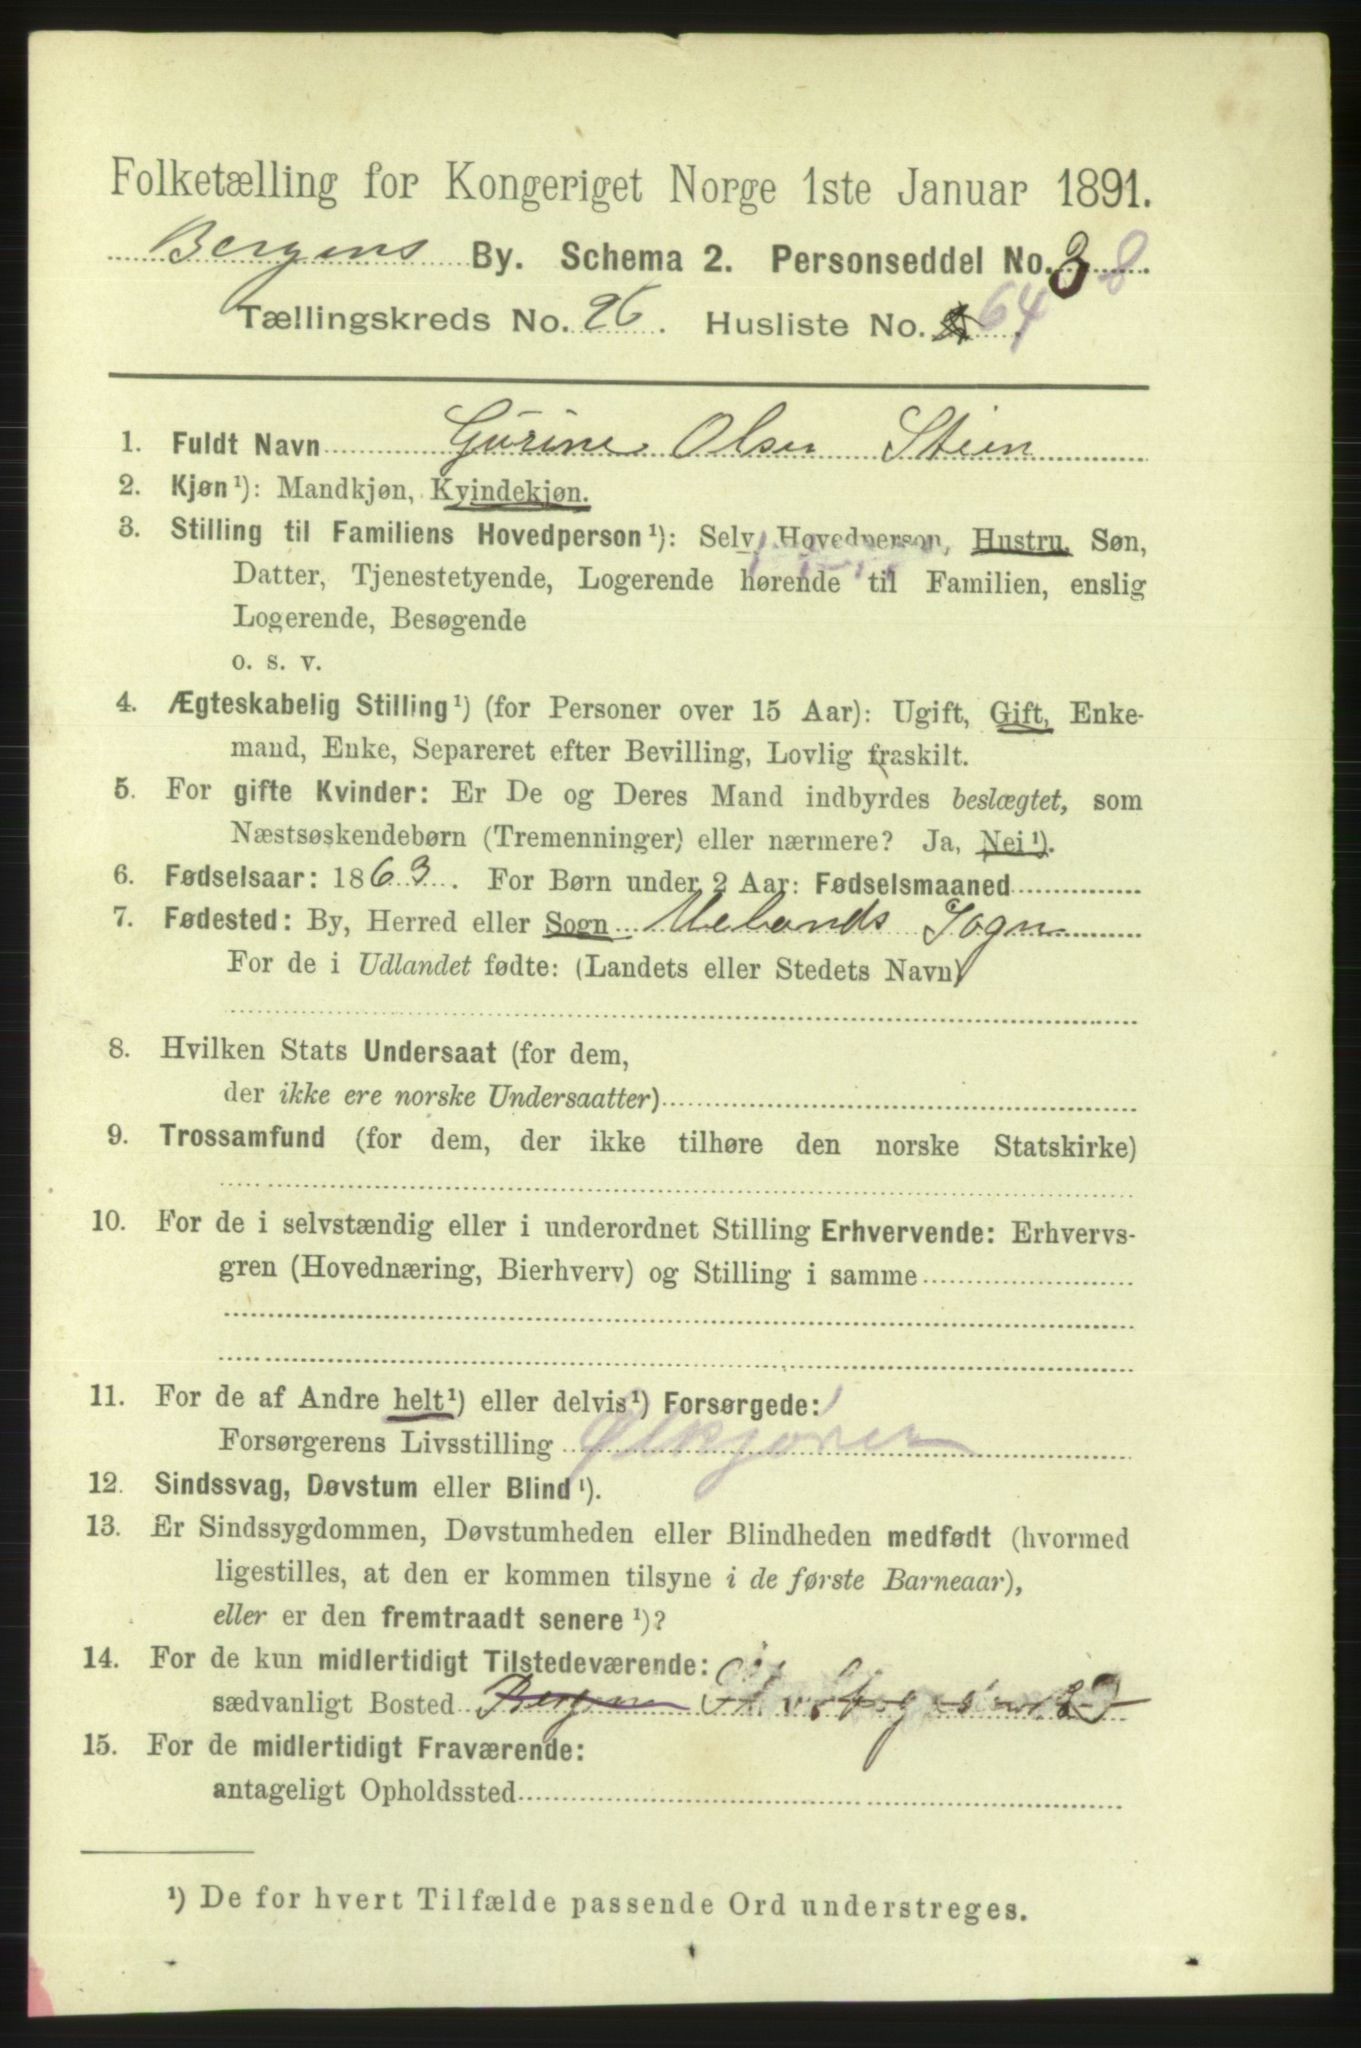 Folketælling for Kongeriget Norge 1ste Januar 1891.
Bergens By. Schema 2. Personseddel No. 3 8
Tællingskreds No. 26. Husliste No. 64
1. Fuldt Navn Gurine Olsen Stien
2. Kjøn¹): Mandkjøn, Kvindekjøn.
3. Stilling til Familiens Hovedperson¹): Selv Hovedperson, Hustru, Søn,
Datter, Tjenestetyende, Logerende hørende til Familien, enslig
Logerende, Besøgende
o. s. v.
4. Ægteskabelig Stilling¹) (for Personer over 15 Aar): Ugift, Gift, Enke-
mand, Enke, Separeret efter Bevilling, Lovlig fraskilt.
5. For gifte Kvinder: Er De og Deres Mand indbyrdes beslægtet, som
Næstsøskendebørn (Tremenninger) eller nærmere? Ja, Nei¹).
6. Fødselsaar: 1863. For Børn under 2 Aar: Fødselsmaaned
7. Fødested: By, Herred eller Sogn Sogn
For de i Udlandet fødte: (Landets eller Stedets Navn)
8. Hvilken Stats Undersaat (for dem,
der ikke ere norske Undersaatter)
9. Trossamfund (for dem, der ikke tilhøre den norske Statskirke)
10. For de i selvstændig eller i underordnet Stilling Erhvervende: Erhvervs-
gren (Hovednæring, Bierhverv) og Stilling i samme
11. For de af Andre helt¹) eller delvis¹) Forsørgede:
Forsørgerens Livsstilling Ølkjører
12. Sindssvag, Døvstum eller Blind¹).
13. Er Sindssygdommen, Døvstumheden eller Blindheden medfødt (hvormed
ligestilles, at den er kommen tilsyne i de første Barneaar),
eller er den fremtraadt senere¹)?
14. For de kun midlertidigt Tilstedeværende:
sædvanligt Bosted Bergen
15. For de midlertidigt Fraværende:
antageligt Opholdssted
¹) De for hvert Tilfælde passende Ord understreges.